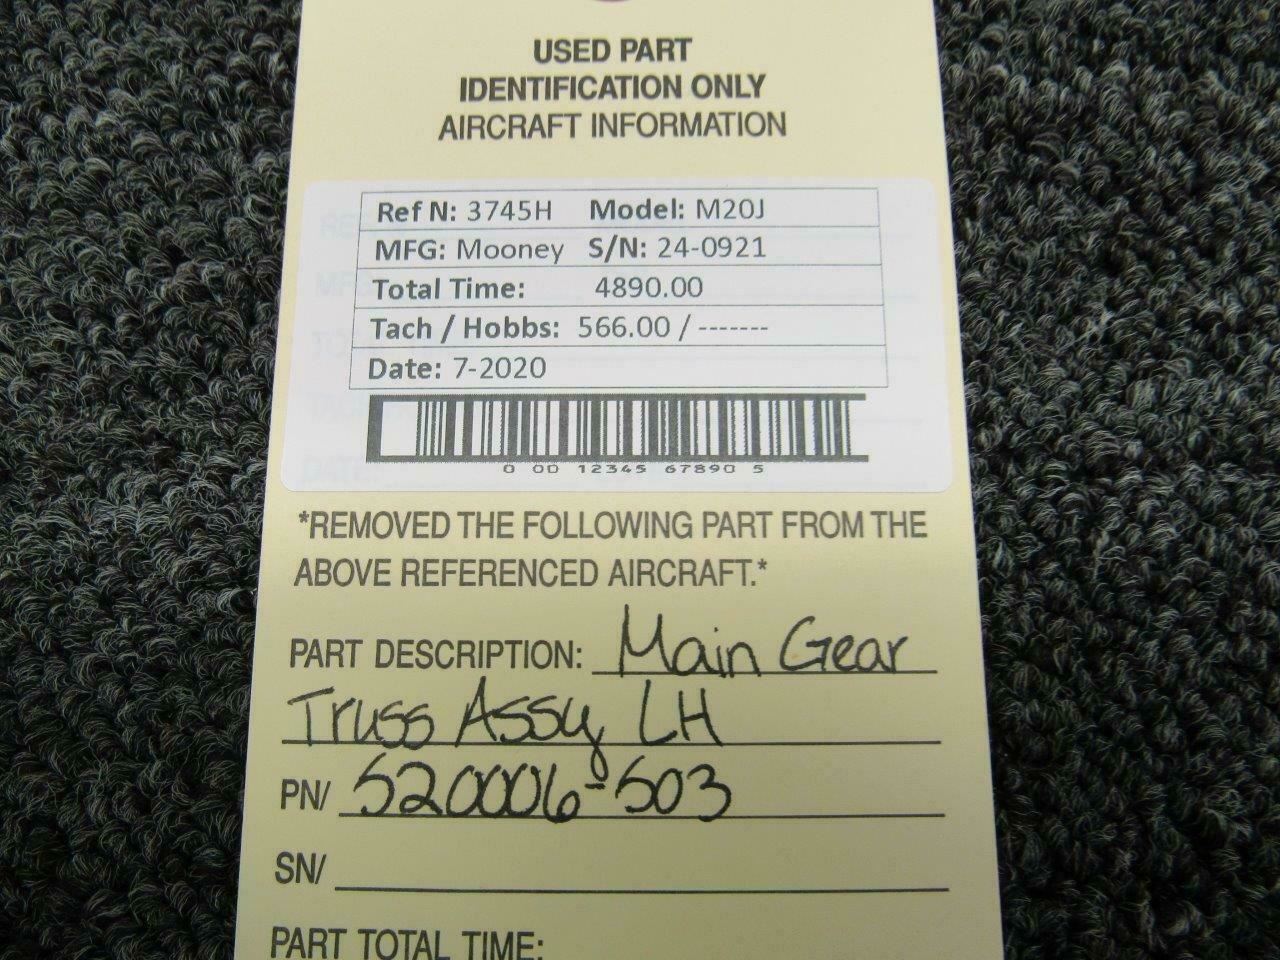 USED PART
IDENTIFICATION ONLY
AIRCRAFT INFORMATION
Ref N: 3745H Model: M20J
MFG: Mooney S/N: 24-0921
Total Time: 4890.00
Tach / Hobbs: 566.00 / -------
Date: 7-2020
0 00 12345 67890 5
*REMOVED THE FOLLOWING PART FROM THE
ABOVE REFERENCED AIRCRAFT.*
PART DESCRIPTION: Main Gear
Truss Assy LH
PN/ 520006-503
SN/
PART TOTAL TIME: